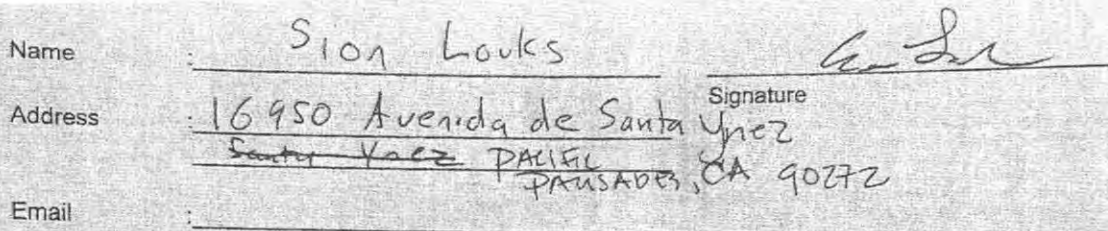 Name : Sion Louks
Signature
Address : 16950 Avenida de Santa Ynez
Santa Ynez PACIFIC
PALISADES, CA 90272
Email :